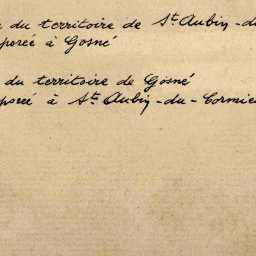 du territoire de St. Aubin-du
à Gosné
du territoire de Gosné
à St. Aubin-du-Cormier